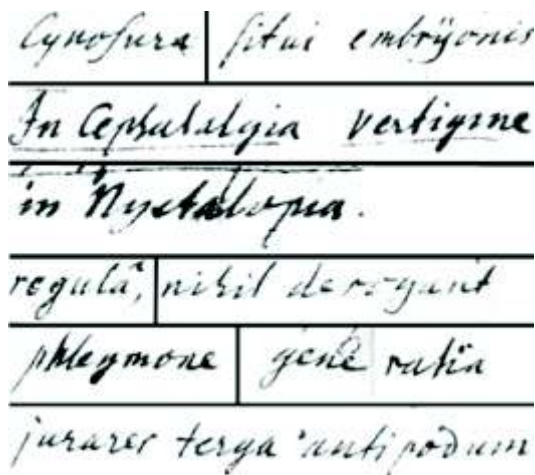 Cynosura situi embrÿonis
In Cephalalgia vertigine
in Nyctalopia.
regulâ, nihil derogant
phlegmone gene ratia
jurares terga antipodum